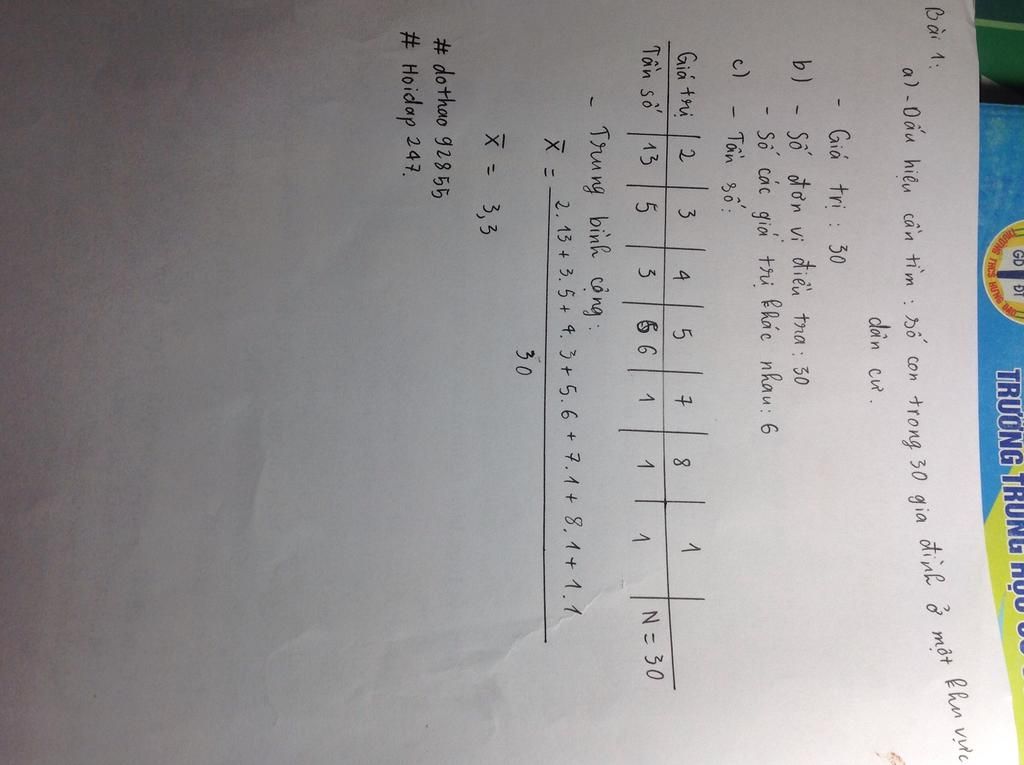 Bài 1:
a) - Dấu hiệu cần tìm : số con trong 30 gia đình ở một khu vực
dân cư.
- Giá trị : 30
b) - Số đơn vị điều tra : 30
- Số các giá trị khác nhau : 6
c) - Tần số :
Giá trị | 2 | 3 | 4 | 5 | 7 | 8 | 1
Tần số | 13 | 5 | 3 | 6 | 1 | 1 | 1 | N = 30
- Trung bình cộng :
X̄ = 2.13 + 3.5 + 4.3 + 5.6 + 7.1 + 8.1 + 1.1
30
X̄ = 3,3
# dothao92855
# Hoidap247.
GD ĐT
TRƯỜNG THCS
TRƯỜNG TRUNG HỌC